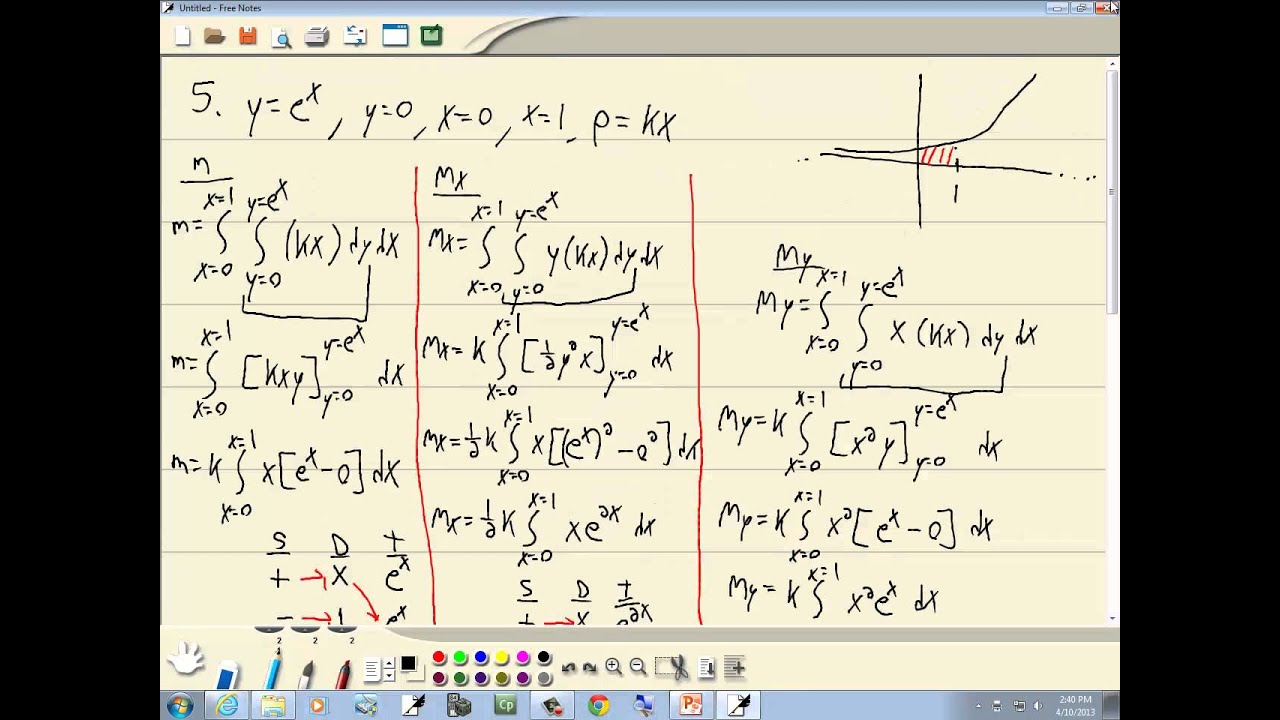 Untitled - Free Notes
5. y=e^x, y=0, x=0, x=1, ρ=kx
1
m
m= ∫_{x=0}^{x=1} ∫_{y=0}^{y=e^x} (kx) dy dx
m= ∫_{x=0}^{x=1} [kxy]_{y=0}^{y=e^x} dx
m= k ∫_{x=0}^{x=1} x[e^x-0] dx
S D I
+ → x e^x
- → 1 e^x
Mx
Mx= ∫_{x=0}^{x=1} ∫_{y=0}^{y=e^x} y(kx) dy dx
Mx= k ∫_{x=0}^{x=1} [½y²x]_{y=0}^{y=e^x} dx
Mx= ½k ∫_{x=0}^{x=1} x[(e^x)²-0²] dx
Mx= ½k ∫_{x=0}^{x=1} xe^{2x} dx
S D I
+ → x e^{2x}
My
My= ∫_{x=0}^{x=1} ∫_{y=0}^{y=e^x} x(kx) dy dx
My= k ∫_{x=0}^{x=1} [x²y]_{y=0}^{y=e^x} dx
My= k ∫_{x=0}^{x=1} x²[e^x-0] dx
My= k ∫^{x=1} x²e^x dx
2 2 2
Cp
2:40 PM
4/10/2013